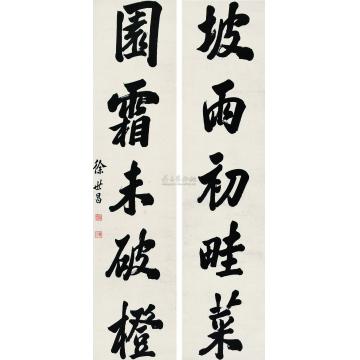 坡雨初畦菜
園霜未破橙
徐世昌